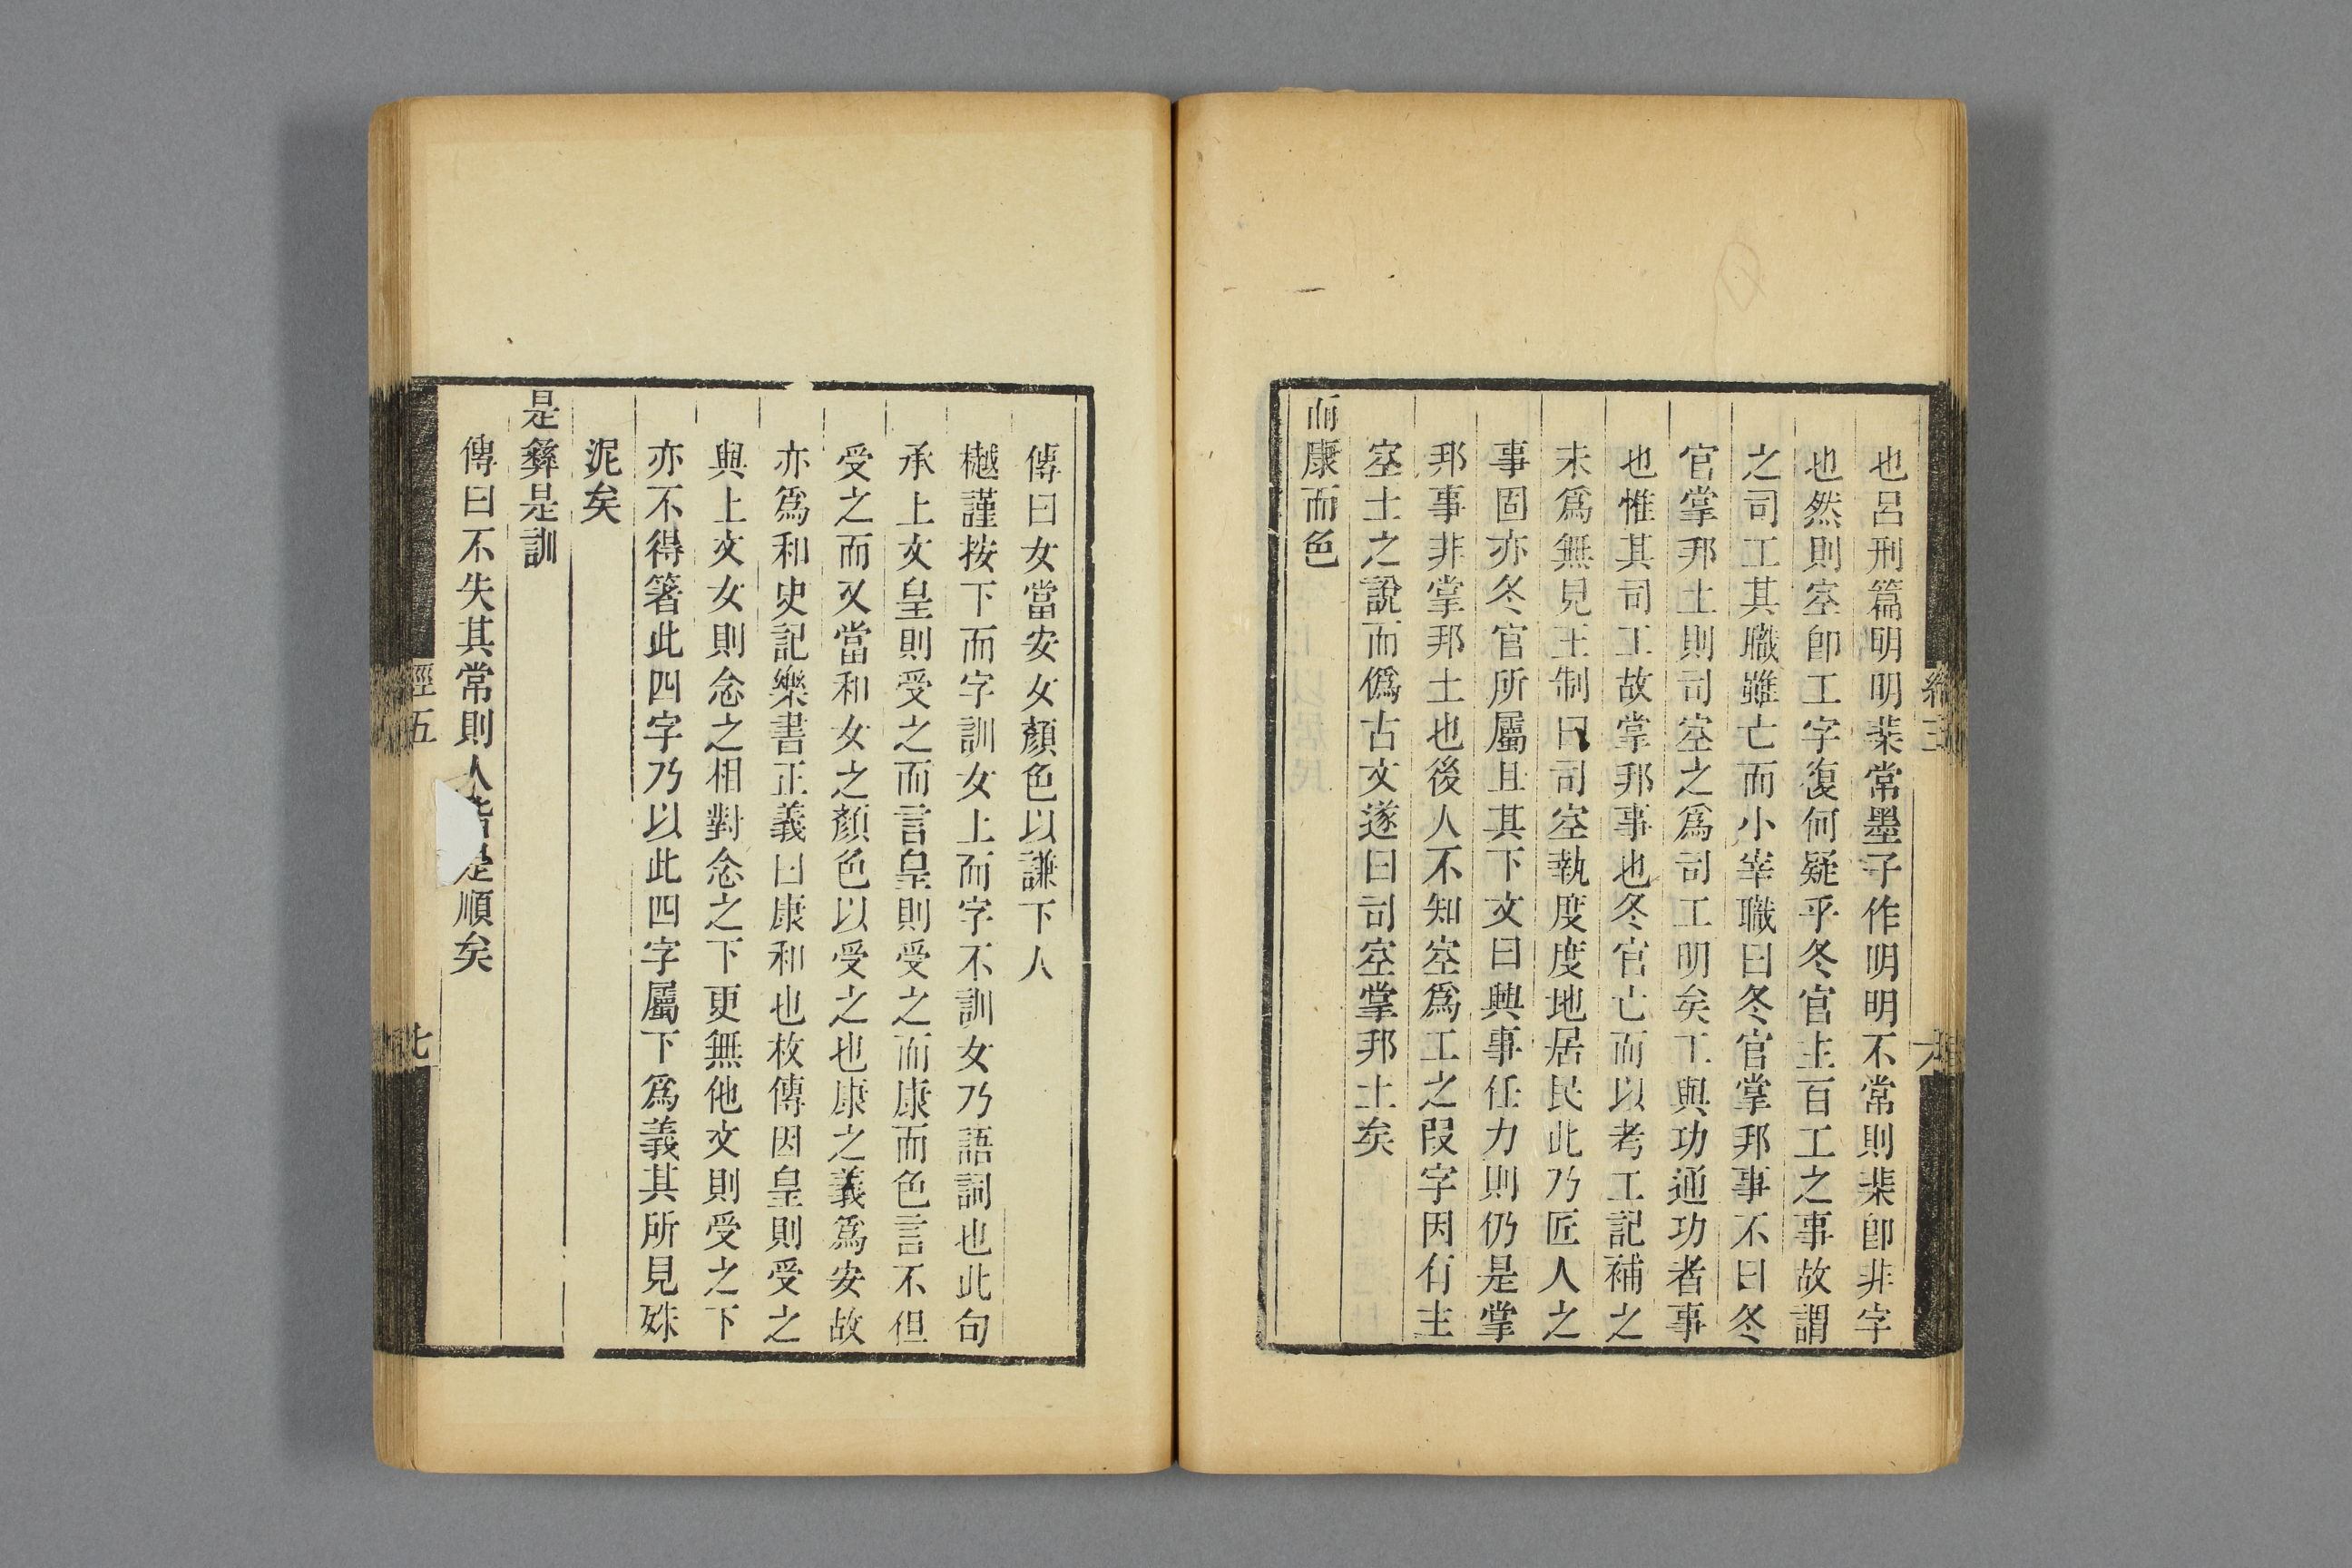 也呂刑篇明明棐常墨子作明明不常則棐卽非字
也然則空卽工字復何疑乎冬官主百工之事故謂
之司工其職雖亡而小宰職曰冬官掌邦事不曰冬
官掌邦土則司空之爲司工明矣工與功通功者事
也惟其司工故掌邦事也冬官亡而以考工記補之
未爲無見王制曰司空執度度地居民此乃匠人之
事固亦冬官所屬且其下文曰興事任力則仍是掌
邦事非掌邦土也後人不知空爲工之叚字因有主
空土之說而僞古文遂曰司空掌邦土矣
而康而色
傳曰女當安女顏色以謙下人
樾謹按下而字訓女上而字不訓女乃語詞也此句
承上文皇則受之而言皇則受之而康而色言不但
受之而又當和女之顏色以受之也康之義爲安故
亦爲和史記樂書正義曰康和也枚傳因皇則受之
與上文女則念之相對念之下更無他文則受之下
亦不得箸此四字乃以此四字屬下爲義其所見殊
泥矣
是彝是訓
傳曰不失其常則人皆是順矣
經五
七